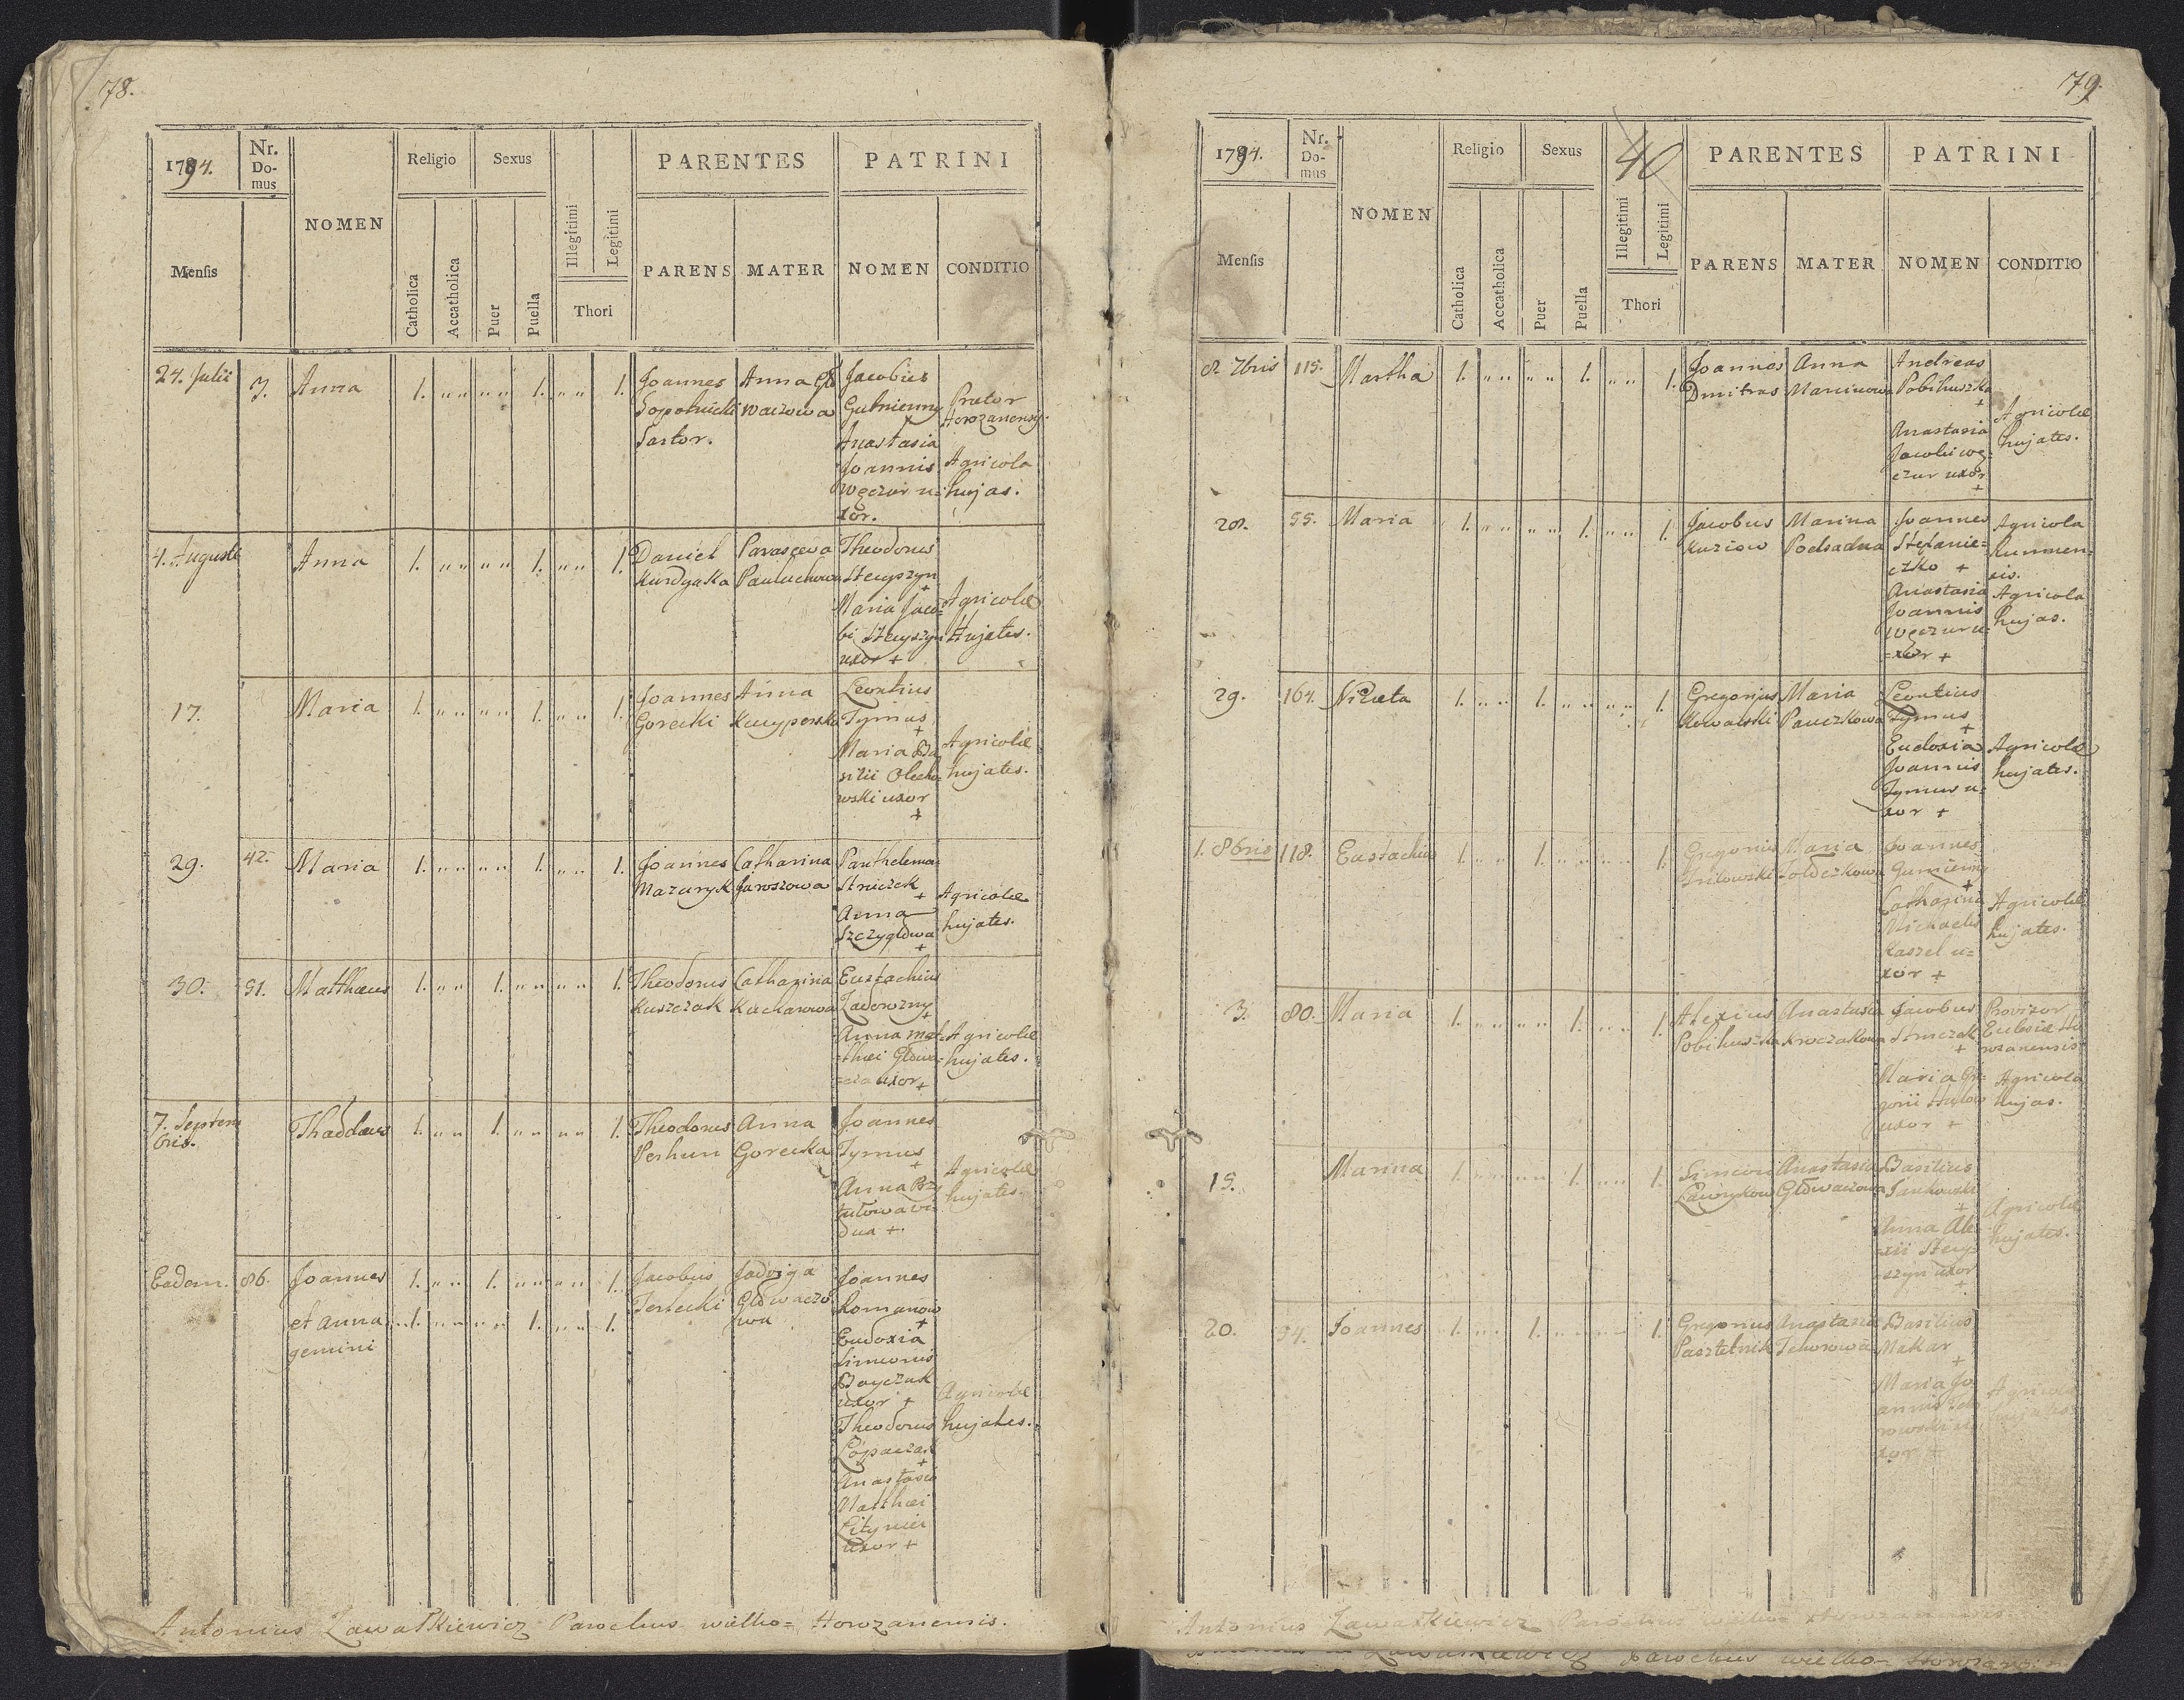 78.
1794.
Nr. Do-
mus
NOMEN
Religio
Sexus
PARENTES
PATRINI
Mensis
Catholica
Accatholica
Puer
Puella
Illegitimi
Legitimi
Thori
PARENS
MATER
NOMEN
CONDITIO
24. Julii 3. Anna 1. „ „ „ „ 1. „ „ 1.
Joannes
Sopotnicki
Sartor.
Anna Gło
waczowa
Jacobus
Gutnienny
Anastasia
Joannis
Węczur u-
xor.
Praetor
Horozanensis.
Agricola
hujas.
4. Augusti Anna 1. „ „ „ „ 1. „ „ 1.
Daniel
Kurdyaka
Parasceva
Pauluchowa
Theodorus
Stecyszyn
+
Maria Jaco-
bi Stecyszyn
uxor +
Agricolae
Hujates.
17. Maria 1. „ „ „ „ 1. „ „ 1.
Joannes
Gorecki
Anna
Kucyperska
Leontius
Tymus
+
Maria Ba
silii Olecho
wski uxor
+
Agricolae
hujates.
29. 42. Maria 1. „ „ „ „ 1. „ „ 1.
Joannes
Mazuryk
Catharina
Jaroszowa
Panthelema
Struczek
+
Anna
Szczygłowa
+
Agricolae
hujates.
30. 51. Matthaeus 1. „ „ 1. „ „ „ „ 1.
Theodorus
Kuszczak
Catharina
Kucharowa
Eustachius
Zadorozny
+
Anna Mat-
thaei Głowa-
cza uxor +
Agricolae
hujates.
7. Septem
bris.
Thaddaeus 1. „ „ 1. „ „ „ „ 1.
Theodorus
Verhun
Anna
Gorecka
Joannes
Tymus
+
Anna
vi-
dua +
Agricolae
hujates.
Eadem. 86. Joannes 1. „ „ 1. „ „ „ „ 1.
et Anna 1. „ „ „ „ 1. „ „ 1.
gemini
Jacobus
Terlecki
Jadviga
Głowaczo
wa
Joannes
Romanow
+
Eudoxia
Simeonis
Bayczuk
uxor +
Theodorus
Łopaczak
+
Anastasia
Matthaei
Litynier
uxor +
Agricolae
hujates.
Antonius Zawałkiewicz Parochus wielko= Horozanensis.
79.
1794.
Nr.
Do-
mus
NOMEN
Religio
Sexus
40
PARENTES
PATRINI
Mensis
Catholica
Accatholica
Puer
Puella
Illegitimi
Legitimi
Thori
PARENS
MATER
NOMEN
CONDITIO
8. 7bris 115. Martha 1. „ „ „ „ 1. „ „ 1.
Joannes
Dmitras
Anna
Marcinowa
Andreas
Pobihuszka
+
Anastasia
Jacobi Wę-
czur uxor
+
Agricolae
hujates.
28. 55. Maria 1. „ „ „ „ 1. „ „ 1.
Jacobus
Kuziow
Marina
Podsadna
Joannes
Stefanie-
czko +
Anastasia
Joannis
Węczur u-
xor +
Agricola
Rummen-
sis.
Agricola
hujas.
29. 164. Niceta 1. „ „ 1. „ „ „ „ 1.
Gregorius
Kowalski
Maria
Pauczkowa
Leontius
Tymus
+
Eudoxia
Joannis
Tymus u-
xor +
Agricolae
hujates.
1. 8bris 118. Eustachius 1. „ „ 1. „ „ „ „ 1.
Gregorius
Maria
Joannes
Gumienny
+
Catharina
Michaelis
Kaszel u=
xor +
Agricolae
hujates.
3. 80. Maria 1. „ „ „ „ 1. „ „ 1.
Alexius
Pobihuszka
Anastasia
Kroczakowa
Jacobus
Struczek
+
Maria Gre-
gorii
uxor +
Provisor
Ecclesiae Ho
rozanensis.
Agricola
hujas.
15. Marina 1. „ „ „ „ 1. „ „ 1.
Simeon
Ławrykow
Anastasia
Głowaczowa
Basilius
Jankowski
+
Anna Ale-
xii Stecy-
szyn uxor
+
Agricolae
hujates.
20. 54. Joannes 1. „ „ 1. „ „ „ „ 1.
Gregorius
Pasztetnik
Anastasia
Fedorowa
Basilius
Makar
+
Maria Jo
annis
xor +
Agricolae
hujates.
Antonius Zawałkiewicz Parochus wielko= Horozanensis.
Zawałkiewicz Parochus wielko=